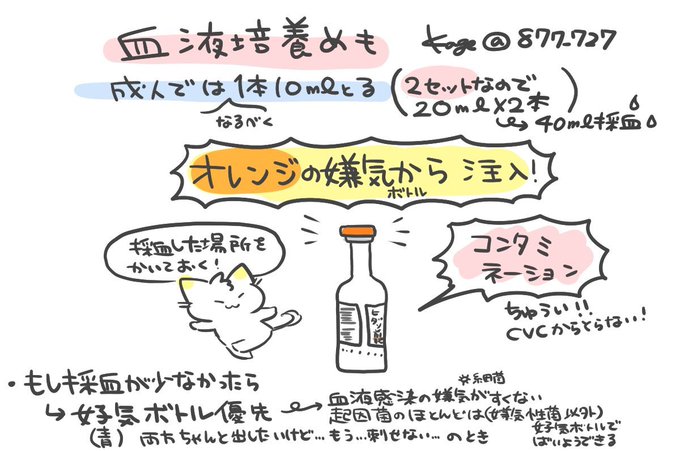 血液培養めも
Kage@877_727
成人では1本10mlとる
なるべく
(2セットなので
20ml×2本)
→40ml採血
オレンジの嫌気から注入!
ボトル
採血した場所を
かいておく!
コンタミ
ネーション
ちゅうい!!
CVCからとらない!
・もしも採血が少なかったら
→好気ボトル優先
(青)
→血液感染の嫌気がすくない
※細菌
起因菌のほとんどは(嫌気性菌以外)
好気ボトルで
ばいようできる
両方ちゃんと出したいけど…もう…刺せない…のとき